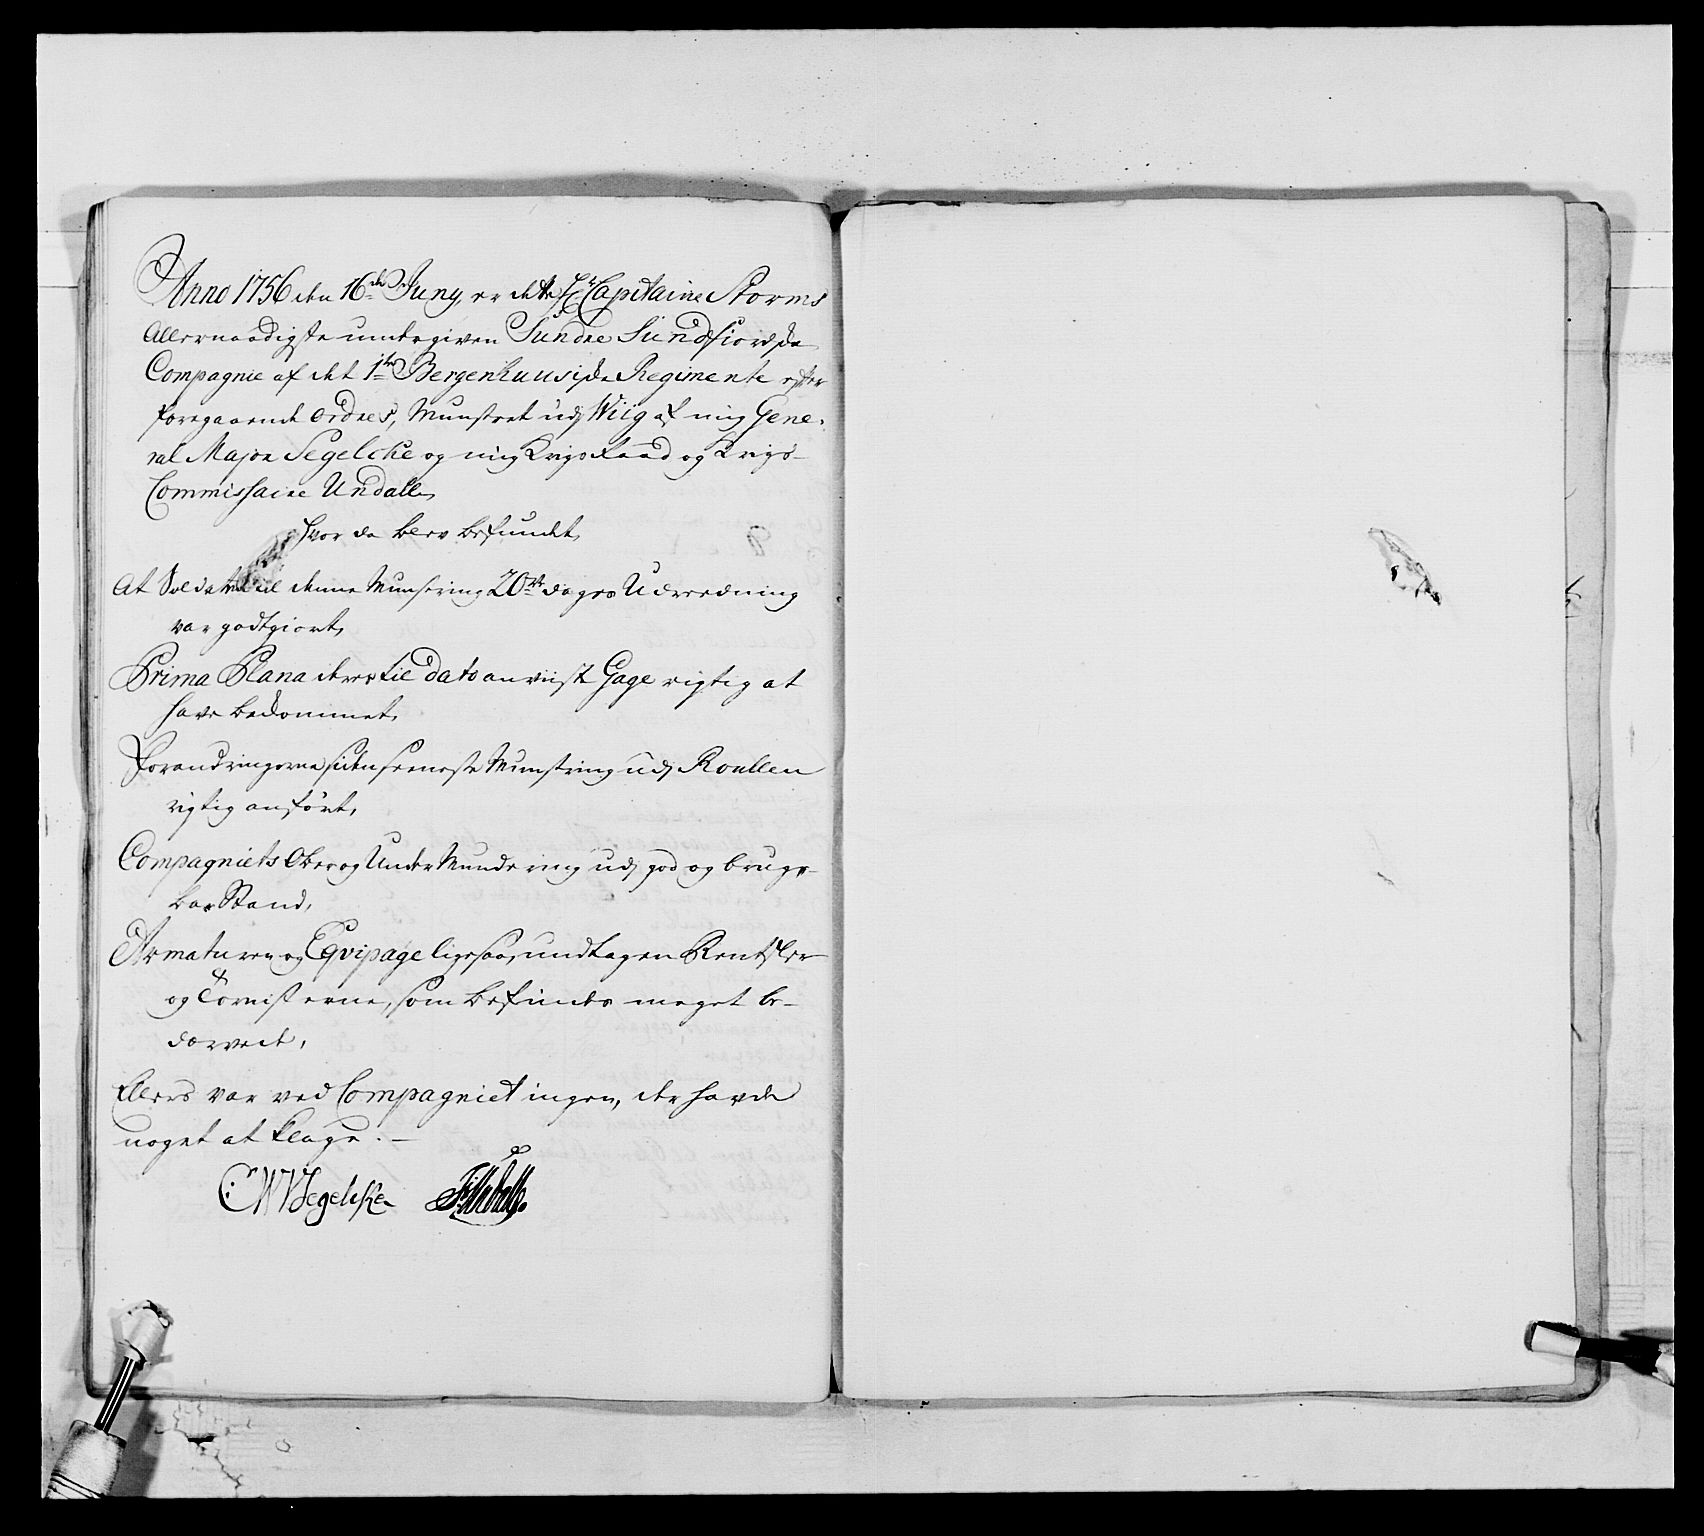 Anno 1756 den 16de Juny, er dette Hr Capitaine Storms
Allernaadigste undergiven Sundre Sundfiordske
Compagnie af det 1te Bergenhuusiske Regimente efter
foregaaende Ordres, Munstret udj Wiig af mig Gene-
ral Major Segelcke og mig Krigs Raad og Krigs-
Commissaire Undall,
hvor da blev befundet,
At Soldaten til denne Munstring 20de dages Udreedning
var godtgiort,
Prima Plana deres til dato anviiste Gage rigtig at
have bekommet,
Forandringerne siden seeneste Munstring udj Roullen
rigtig anført,
Compagniets Ober og Under Mundering udj god og brug-
bar Stand,
Armaturen og Eqvipage ligesaa, undtagen Rentsler
og Tornisterne, som befindes meget be-
dervet,
Ellers var ved Compagniet ingen, der havde
noget at klage. —
C: W Segelcke